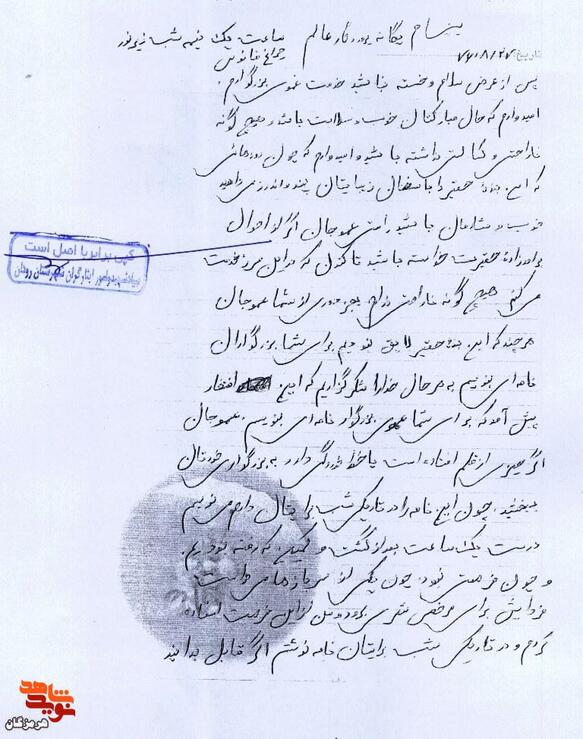 بنام یگانه پروردگار عالم
ساعت یک نیمه شب زیر نور چراغ فانوس
تاریخ: ۷۷/۸/۲۷
پس از عرض سلام و خسته نباشید خدمت عموی بزرگوارم.
امیدوارم که حال مبارکتان خوب و سلامت باشد و هیچ گونه
ناراحتی و کسالتی نداشته باشید و امیدوارم که چون روزهائی
که این بنده حقیر را با سخنان زیبایتان پند و اندرز می دادید
خوب و شادمان باشید راستی عموجان اگر از احوال
برادرزاده حقیرت خواسته باشید تا کنون که در این مرز خدمت
می کنم هیچ گونه ناراحتی ندارم بجز دوری از شما عموجان
هر چند که این بنده حقیر لایق نبودم برای شما بزرگواران
نامه ای بنویسم به هر حال خدا را شکر گزاریم که این افتخار
پیش آمد که برای شما عموی بزرگوار نامه ای بنویسم. عموجان
اگر چیزی از قلم افتاده است یا خط خوردگی دارد به بزرگواری خودتان
ببخشید. چون این نامه را در تاریکی شب برایتان دارم می نویسم
درست یک ساعت بعد از گشت و کمین که رفته بودیم.
و چون فرصتی نبود. چون یکی از سربازهای
فردایش برای مرخصی شهری برود و من از این فرصت استفاده
کردم و در تاریکی شب برایتان نامه نوشتم اگر قابل بدانید
کپی برابر با اصل است
بنیاد شهید و امور ایثارگران شهرستان رودان
نوید شاهد
هرمزگان